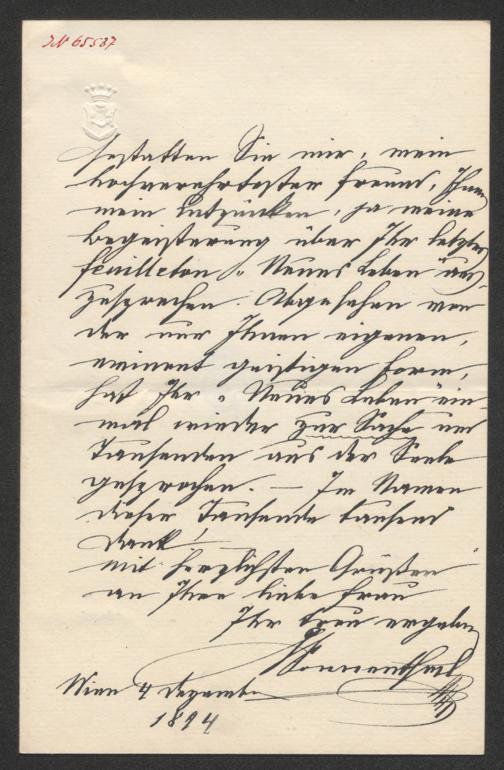 JN 65537
Gestatten Sie mir, mein
hochverehrtester Freund, Ihnen
mein Entzücken, ja meine
Begeisterung über Ihr letztes
Feuilleton „Neues Leben" aus-
zusprechen. Abgesehen von
der nur Ihnen eigenen,
eminent geistigen Form,
hat Ihr „Neues Leben" ein-
mal wieder zur Sache und
Tausenden aus der Seele
gesprochen. — Im Namen
dieser Tausende tausend
Dank!
Mit herzlichsten Grüßen
an Ihre liebe Frau
Ihr treu ergebener
Sonnenthal
Wien 4 Dezember
1894